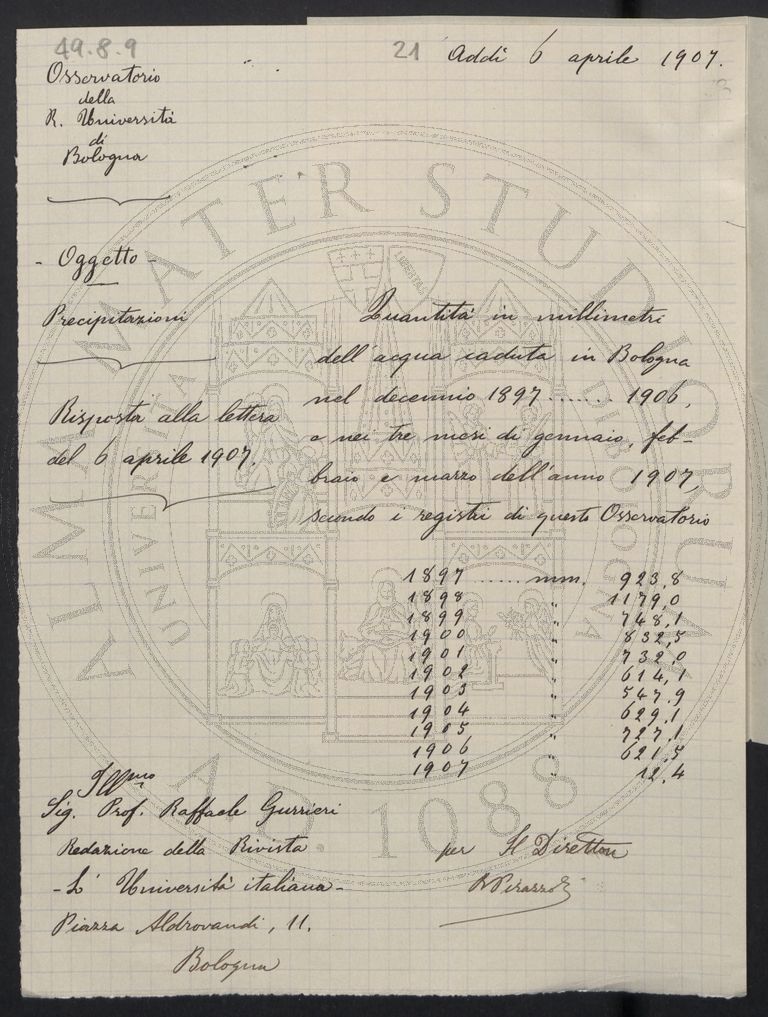 49.8.9
21 Addì 6 aprile 1907.
Osservatorio
della
R. Università
di
Bologna
- Oggetto -
Precipitazioni
Risposta alla lettera
del 6 aprile 1907.
Quantità in millimetri
dell'acqua caduta in Bologna
nel decennio 1897 ....... 1906,
e nei tre mesi di gennaio, feb-
braio e marzo dell'anno 1907,
secondo i registri di questo Osservatorio
1897 ...... mm. 923,8
1898 " 1179,0
1899 " 748,1
1900 " 832,5
1901 " 732,0
1902 " 614,1
1903 " 547,9
1904 " 629,1
1905 " 727,1
1906 " 621,5
1907 " 12,4
Illmo
Sig. Prof. Raffaele Gurrieri
Redazione della Rivista
- L'Università italiana -
Piazza Aldrovandi, 11.
Bologna
per Il Direttore
R Pirazzoli
ALMA MATER STUDIORUM
UNIVERSITÀ DI BOLOGNA
LIBERTAS
A.D. 1088